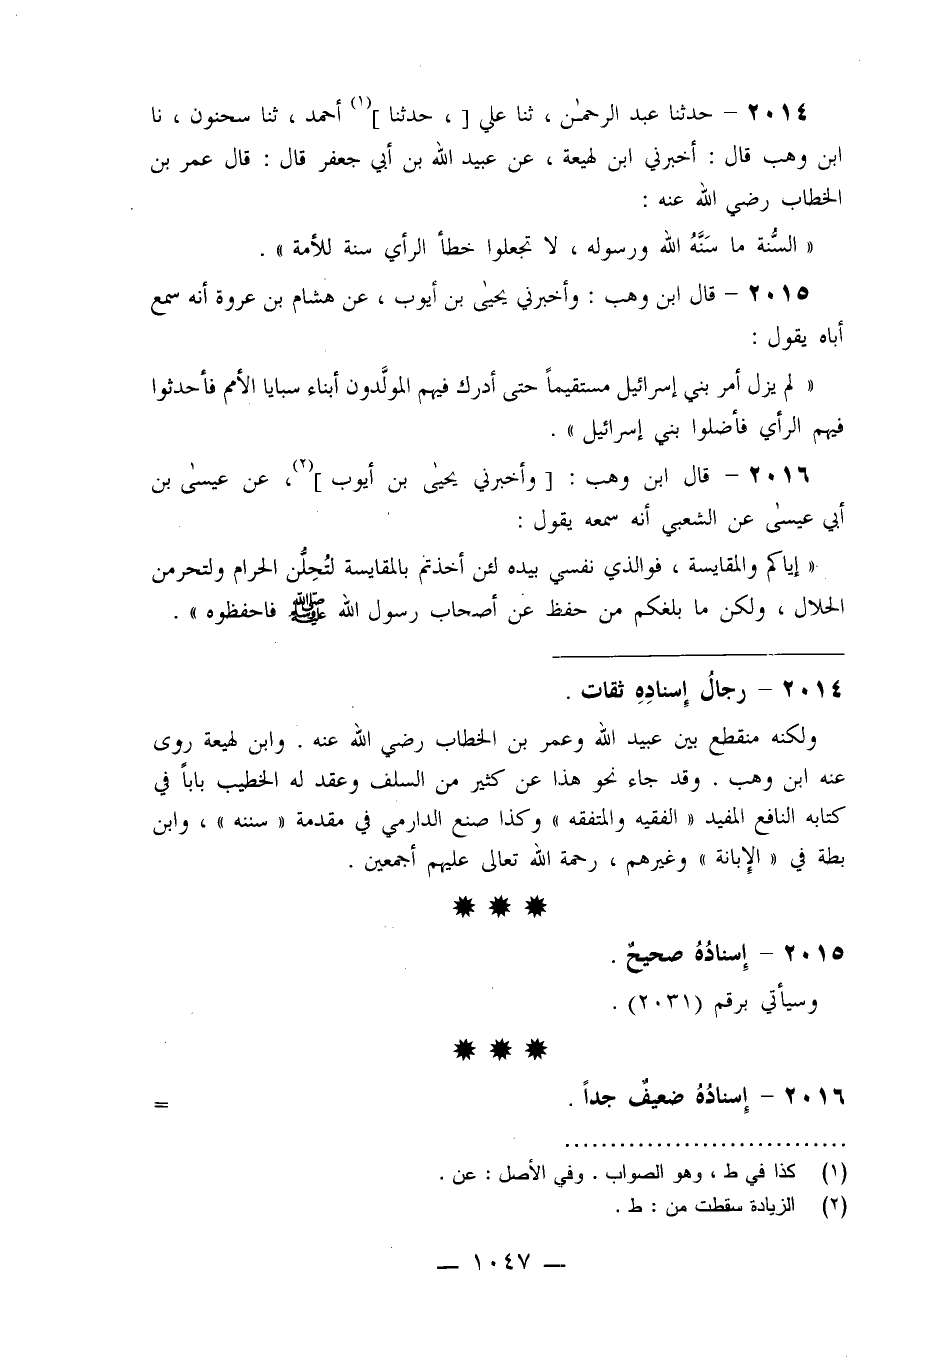 ٢٠١٤ – حدثنا عبد الرحمٰن ، ثنا علي [ ، حدثنا ](١) أحمد ، ثنا سحنون ، نا
ابن وهب قال : أخبرني ابن لهيعة ، عن عبيد الله بن أبي جعفر قال : قال عمر بن
الخطاب رضي الله عنه :
« السُّنة ما سَنَّهُ الله ورسوله ، لا تجعلوا خطأ الرأي سنة للأمة » .
٢٠١٥ – قال ابن وهب : وأخبرني يحيىٰ بن أيوب ، عن هشام بن عروة أنه سمع
أباه يقول :
« لم يزل أمر بني إسرائيل مستقيماً حتى أدرك فيهم المولَّدون أبناء سبايا الأمم فأحدثوا
فيهم الرأي فأضلوا بني إسرائيل » .
٢٠١٦ – قال ابن وهب : [ وأخبرني يحيىٰ بن أيوب ](٢)، عن عيسىٰ بن
أبي عيسىٰ عن الشعبي أنه سمعه يقول :
« إياكم والمقايسة ، فوالذي نفسي بيده لئن أخذتم بالمقايسة لتُحِلُّن الحرام ولتحرمن
الحلال ، ولكن ما بلغكم من حفظ عن أصحاب رسول الله ﷺ فاحفظوه » .
٢٠١٤ – رجالُ إسنادِهِ ثقات .
ولكنه منقطع بين عبيد الله وعمر بن الخطاب رضي الله عنه . وابن لهيعة روى
عنه ابن وهب . وقد جاء نحو هذا عن كثير من السلف وعقد له الخطيب باباً في
كتابه النافع المفيد « الفقيه والمتفقه » وكذا صنع الدارمي في مقدمة « سننه » ، وابن
بطة في « الإبانة » وغيرهم ، رحمة الله تعالى عليهم أجمعين .
✹ ✹ ✹
٢٠١٥ – إسنادُهُ صحيحٌ .
وسيأتي برقم (٢٠٣١) .
✹ ✹ ✹
٢٠١٦ – إسنادُهُ ضعيفٌ جداً . =
(١) كذا في ط ، وهو الصواب . وفي الأصل : عن .
(٢) الزيادة سقطت من : ط .
— ١٠٤٧ —